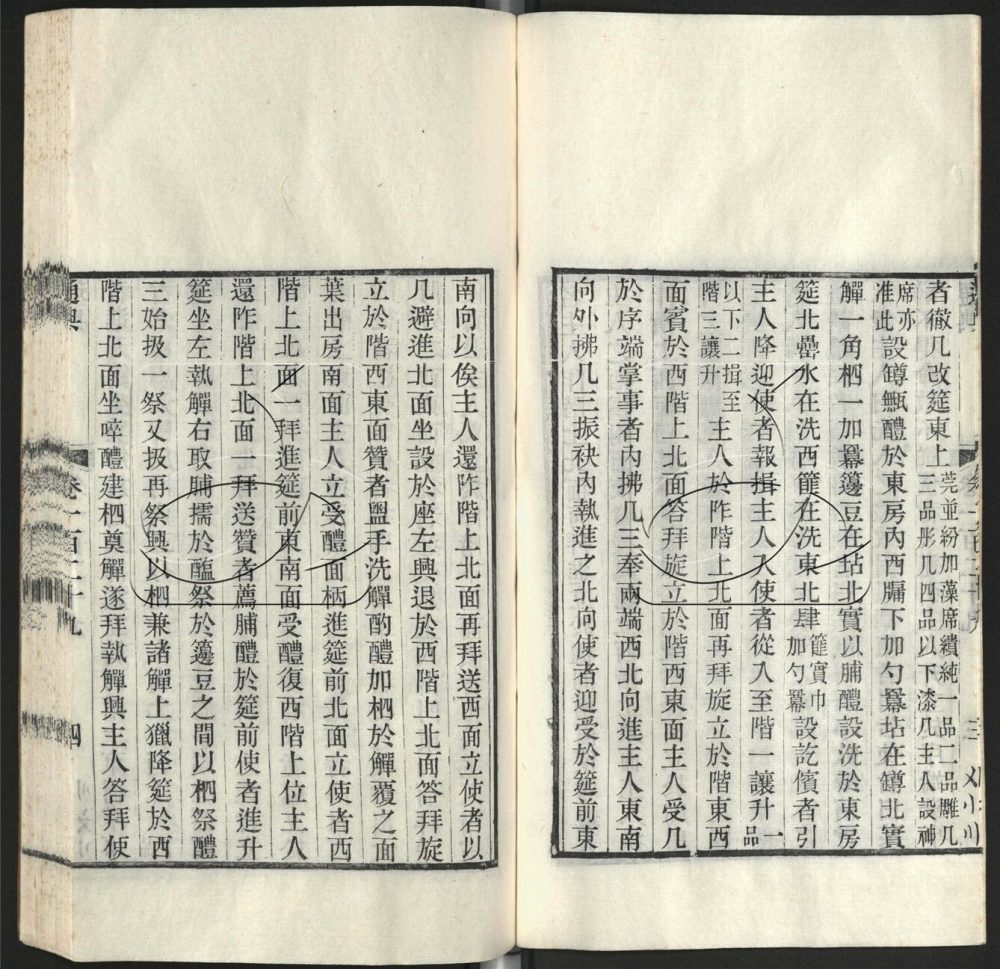 者徹几改筵東上莞並紛加藻席繢純一品二品雕几
三品彤几四品以下漆几主人設神
席亦
准此設罇甒醴於東房內西牖下加勺羃坫在罇北實
觶一角柶一加羃籩豆在坫北實以脯醴設洗於東房
筵北罍水在洗西篚在洗東北肆篚實巾
加勺羃設訖儐者引
主人降迎使者報揖主人入使者從入至階一讓升一
品
以下二揖至
階三讓升主人於阼階上北面再拜旋立於階東西
面賓於西階上北面答拜旋立於階西東面主人受几
於序端掌事者內拂几三奉兩端西北向進主人東南
向外拂几三振袂內執進之北向使者迎受於筵前東
南向以俟主人還阼階上北面再拜送西面立使者以
几避進北面坐設於座左興退於西階上北面答拜旋
立於階西東面贊者盥手洗觶酌醴加柶於觶覆之面
葉出房南面主人立受醴面柄進筵前北面立使者西
階上北面一拜進筵前東南面受醴復西階上位主人
還阼階上北面一拜送贊者薦脯醴於筵前使者進升
筵坐左執觶右取脯擩於醢祭於籩豆之間以柶祭醴
三始扱一祭又扱再祭興以柶兼諸觶上獵降筵於西
階上北面坐啐醴建柶奠觶遂拜執觶興主人答拜使
通典
卷一百二十九
四